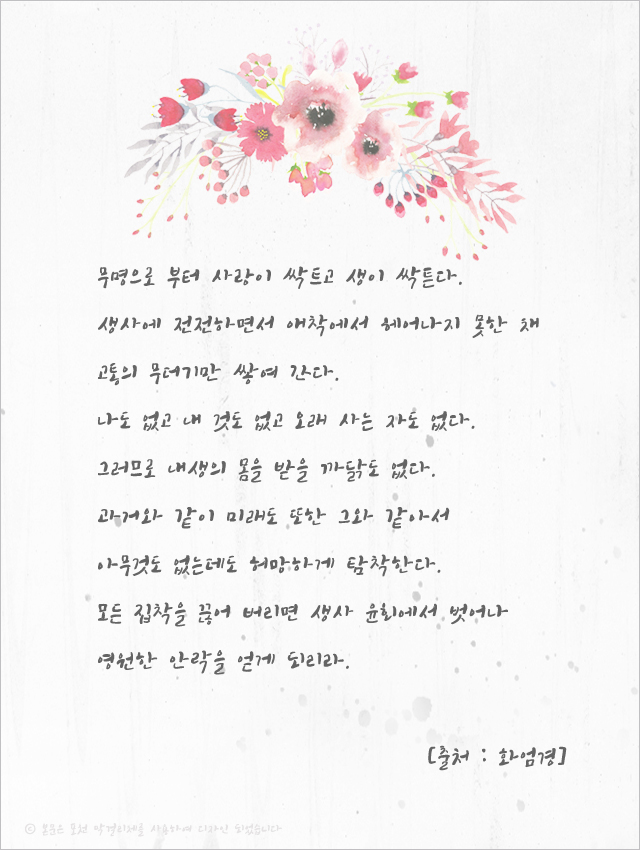 무명으로 부터 사랑이 싹트고 생이 싹튼다.
생사에 전전하면서 애착에서 헤어나지 못한 채
고통의 무더기만 쌓여 간다.
나도 없고 내 것도 없고 오래 사는 자도 없다.
그러므로 내생의 몸을 받을 까닭도 없다.
과거와 같이 미래도 또한 그와 같아서
아무것도 없는데도 허망하게 탐착한다.
모든 집착을 끊어 버리면 생사 윤회에서 벗어나
영원한 안락을 얻게 되리라.
[출처 : 화엄경]
© 사용하여 디자인 되었습니다